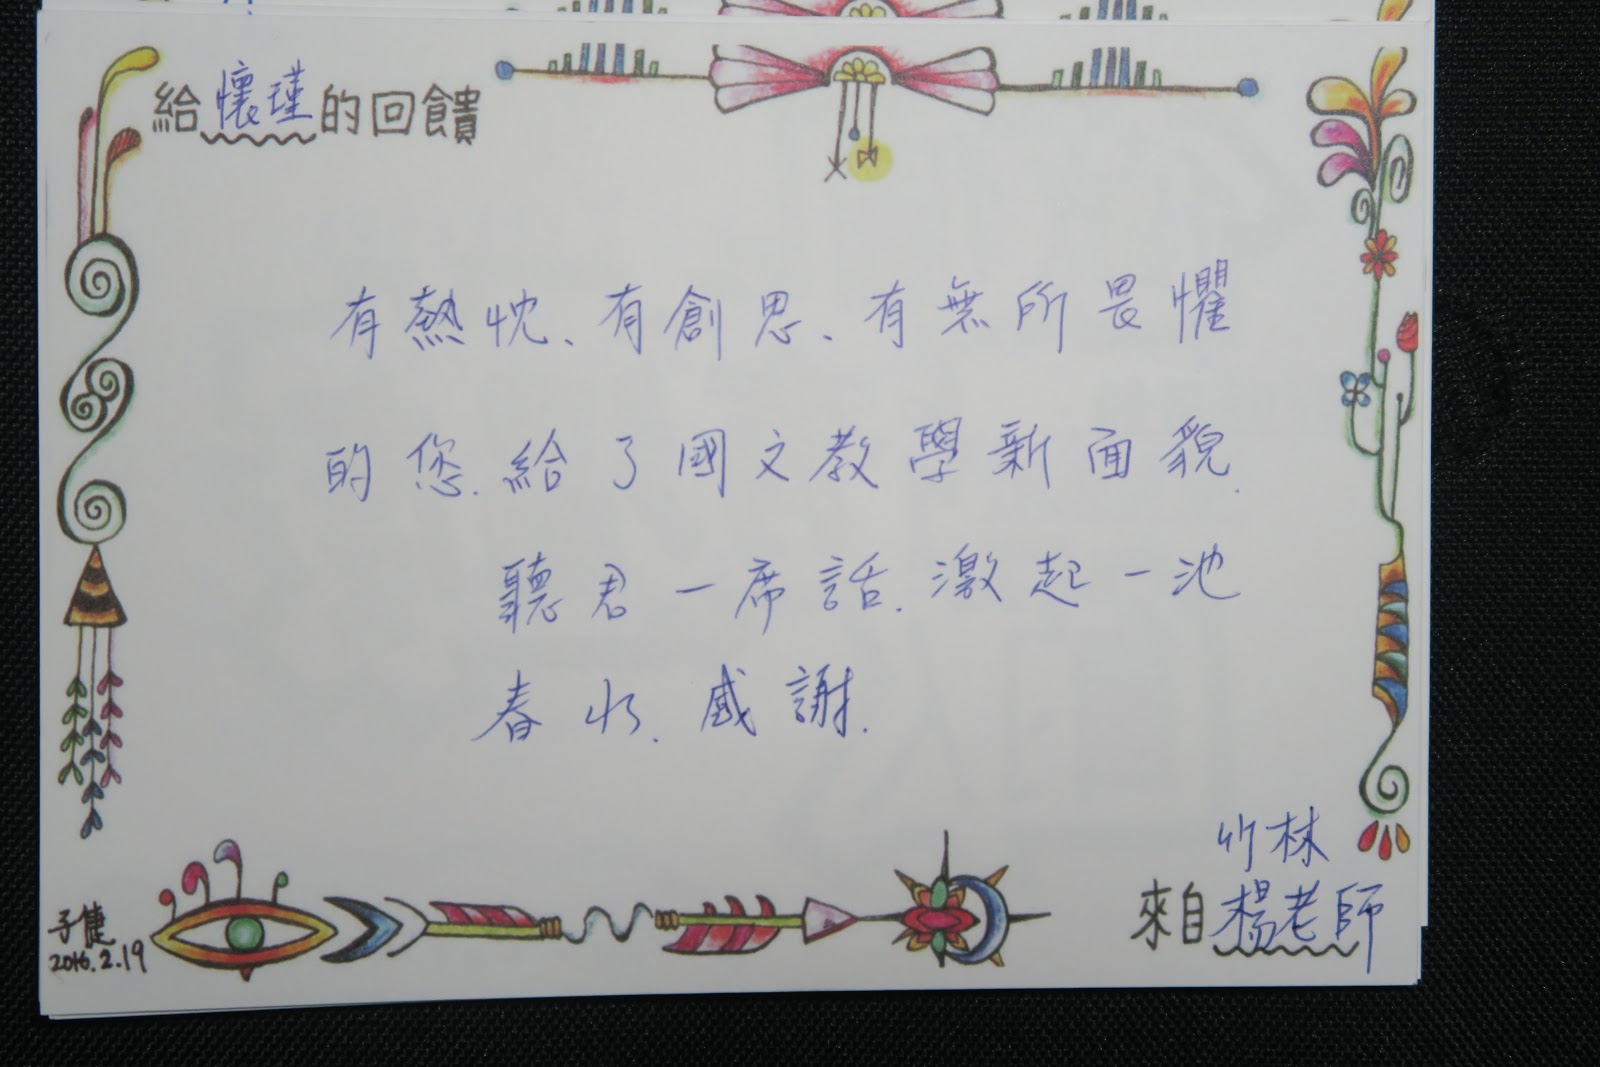 給懷瑾的回饋
有熱忱、有創思、有無所畏懼
的您.給了國文教學新面貌.
聽君一席話.激起一池
春水.感謝.
竹林
來自楊老師
子健
2016.2.19